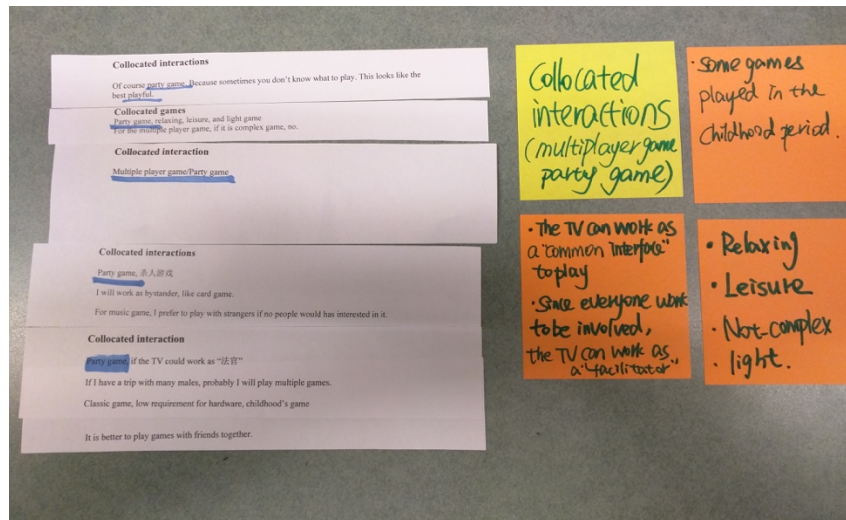 Collocated interactions
Of course party game. Because sometimes you don't know what to play. This looks like the
best playful.
Collocated games
Party game, relaxing, leisure, and light game
For the multiple player game, if it is complex game, no.
Collocated interaction
Multiple player game/Party game
Collocated interactions
Party game, 杀人游戏
I will work as bystander, like card game.
For music game, I prefer to play with strangers if no people would has interested in it.
Collocated interaction
Party game, if the TV could work as “法官”
If I have a trip with many males, probably I will play multiple games.
Classic game, low requirement for hardware, childhood's game
It is better to play games with friends together.
Collocated
interactions
(multiplayer game
party game)
· Some games
played in the
childhood period.
· The TV can work as
a "common interface"
to play
· Since everyone work
to be involved,
the TV can work as
a "facilitator"
· Relaxing
· Leisure
· Not-complex
· light.